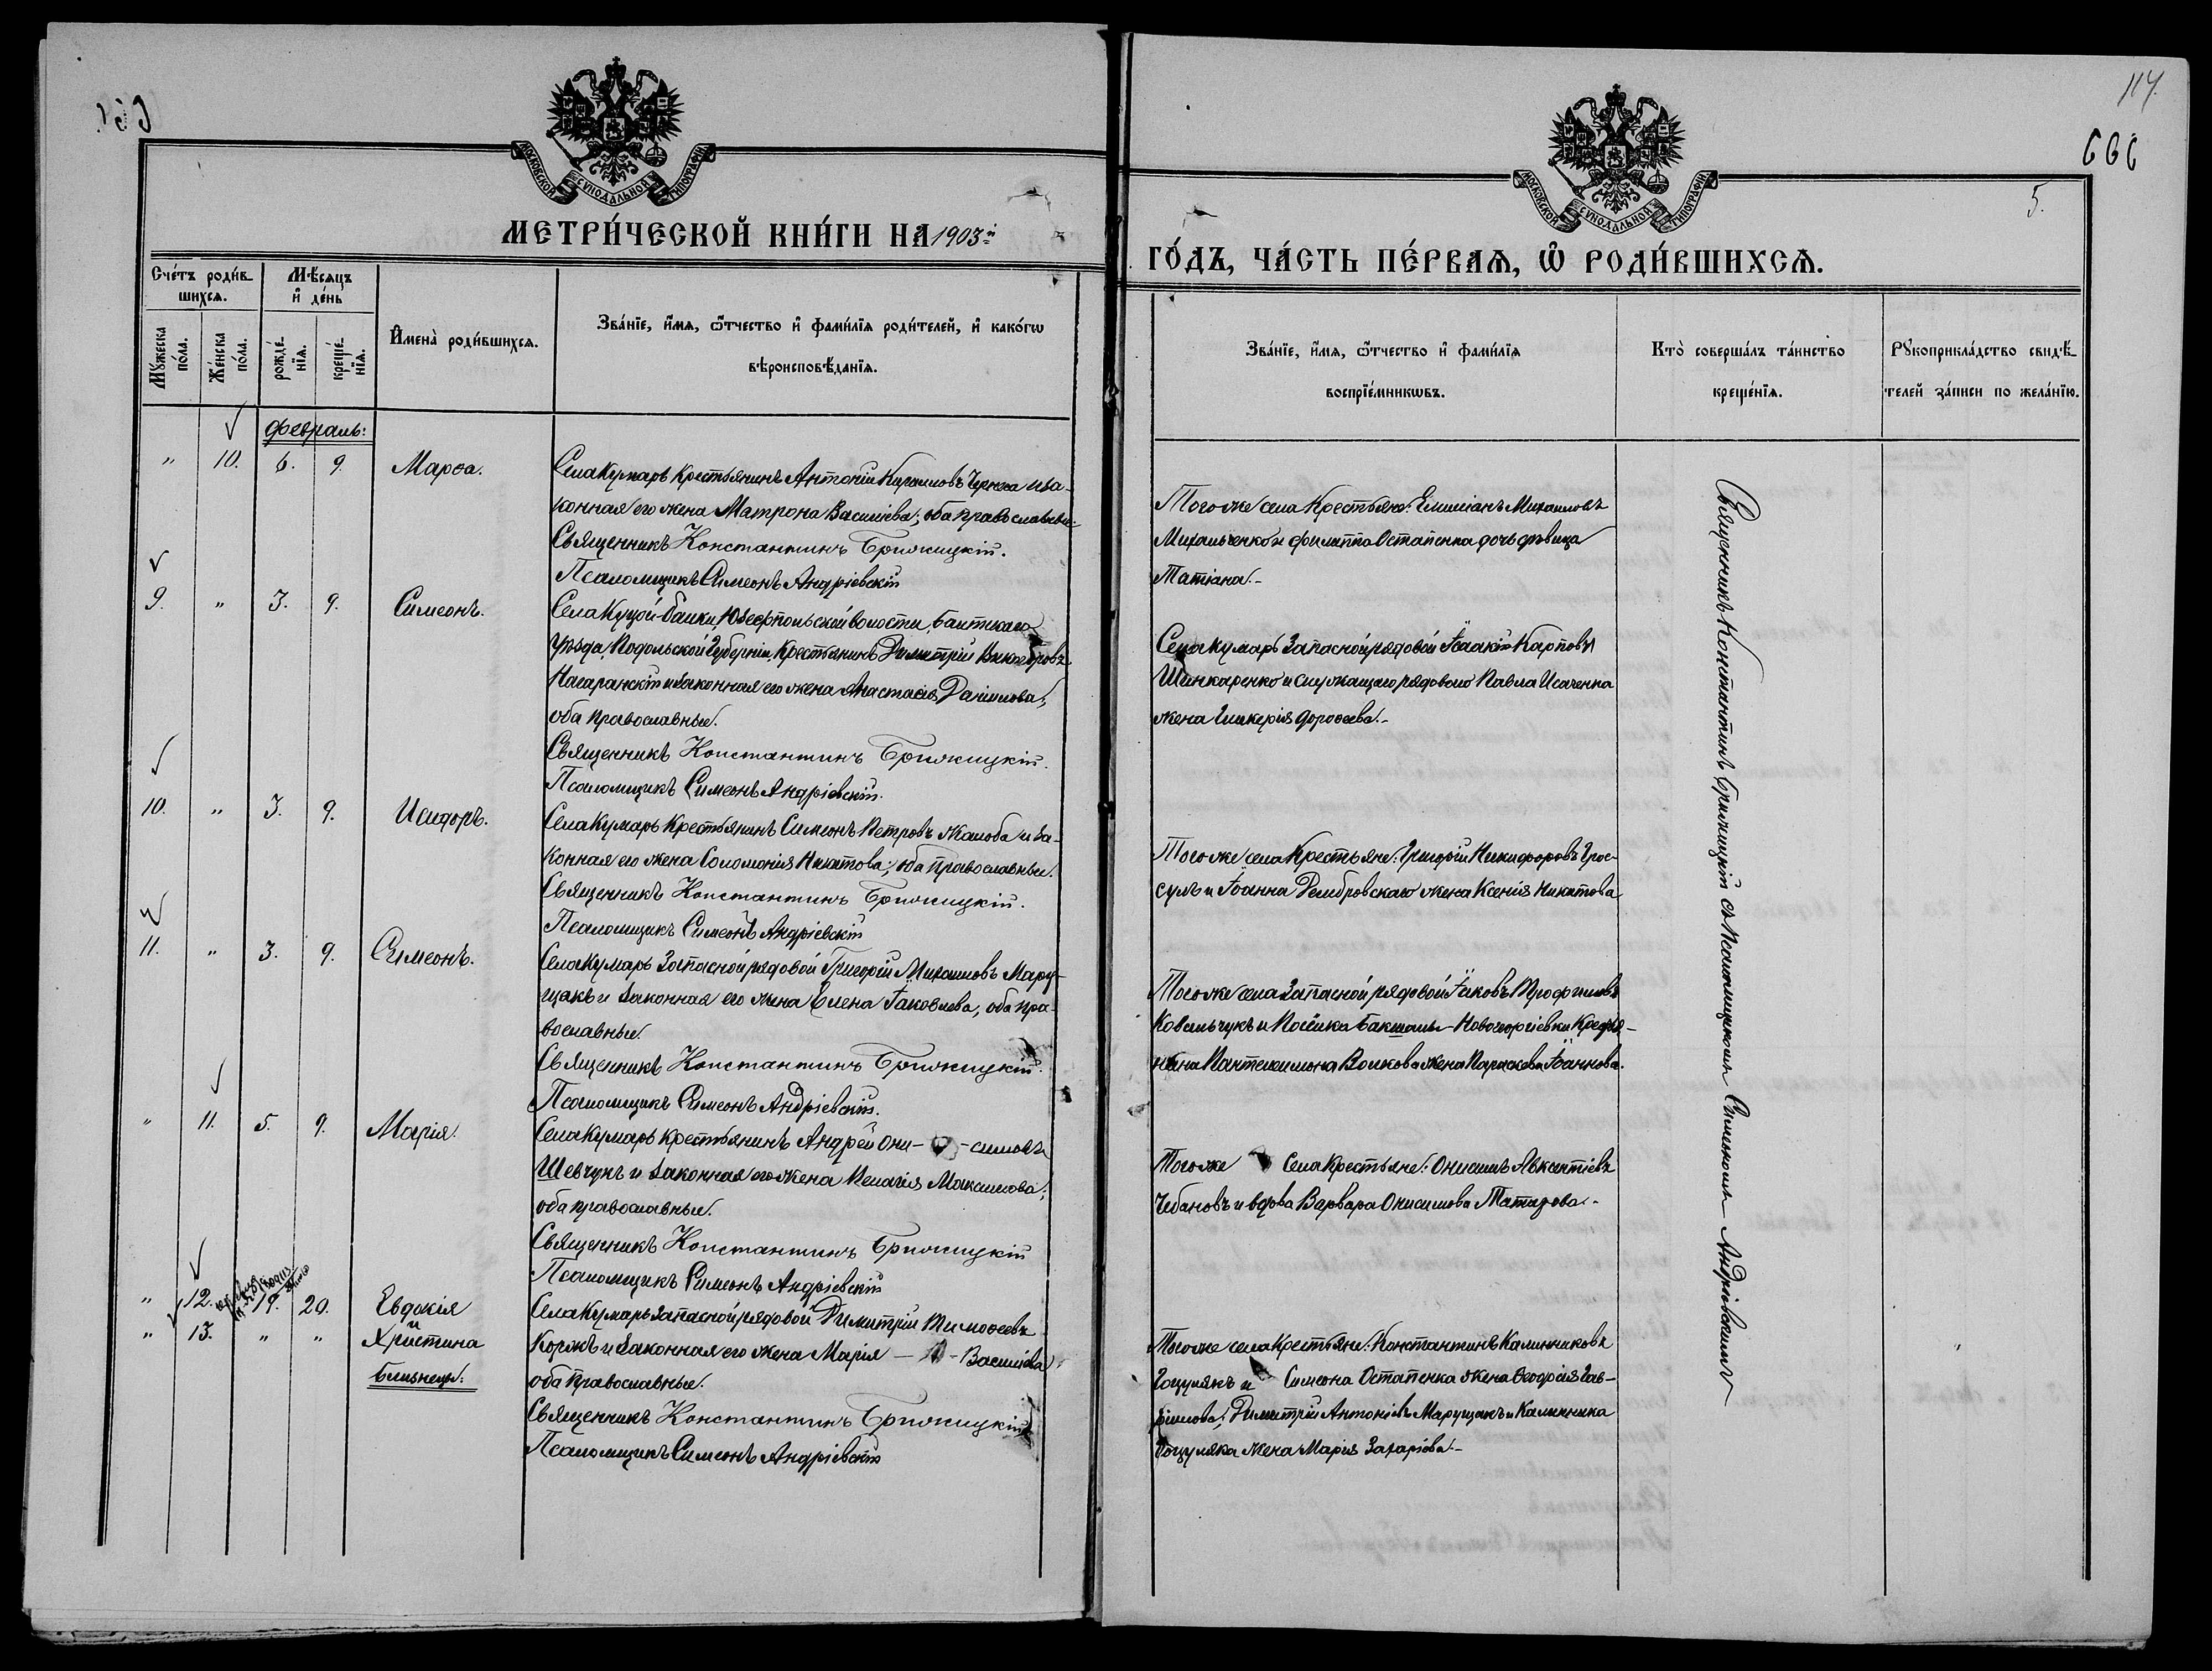 114.
666
5.
МОСКОВСКОЙ СУНОДАЛЬНОЙ ТИПОГРАФІИ
МОСКОВСКОЙ СУНОДАЛЬНОЙ ТИПОГРАФІИ
МЕТРИ́ЧЕСКОЙ КНИ́ГИ НА 1903й
ГО́ДЪ, ЧА́СТЬ ПЕ́РВАѦ, Ѡ҆ РОДИ́ВШИХСѦ.
Сче́тъ роди́в-
шихсѧ.
Мѣ́сѧцъ
и҆ де́нь
Мꙋ́жеска по́ла.
Же́нска по́ла.
рожде́-нїѧ.
креще́-нїѧ.
И҆мена̀ роди́вшихсѧ.
Зва́нїе, и҆́мѧ, ѻ҆́тчество и҆ фами́лїѧ роди́телей, и҆ како́гѡ
вѣроисповѣ́данїѧ.
Зва́нїе, и҆́мѧ, ѻ҆́тчество и҆ фами́лїѧ
воспрїе́мникѡвъ.
Кто̀ соверша́лъ та́инство
креще́нїѧ.
Рꙋкоприкла́дство свидѣ́-
телей за́писи по жела́нїю.
февраль:
" 10. 6. 9. Марѳа.
Села Кумарь Крестьянинъ Антоній Кирилловъ Черноса и за-
конная его жена Матрона Василіева; оба православные.
Священникъ Константинъ Брижицкій.
Псаломщикъ Симеонъ Андріевскій
Того же села Крестьяне: Емиліанъ Михаиловъ
Михальченко и Филиппа Остапенка дочь дѣвица
Татіана.-
9. " 3. 9. Симеонъ.
Села Куцой-Балки, Юзефпольской волости, Балтскаго
Уѣзда, Подольской Губерніи, Крестьянинъ Димитрій
и законная его жена Анастасія Даніилова;
оба православные.
Священникъ Константинъ Брижицкій.
Псаломщикъ Симеонъ Андріевскій.
Села Кумарь Запасной рядовой Іоакій Карповъ
Шинкаренко и служащаго рядового Павла Исаченка
жена Гликерія Дороѳеева.-
10. " 3. 9. Исидоръ.
Села Кумарь Крестьянинъ Симеонъ Петровъ Жалоба и за-
конная его жена Соломонія Никитова; оба православные.
Священникъ Константинъ Брижицкій.
Псаломщикъ Симеонъ Андріевскій
Того же села Крестьяне: Григорій Никифоровъ Грос-
сулъ и Іоанна Домбровскаго жена Ксенія Никитова
11. " 3. 9. Симеонъ.
Села Кумарь Запасной рядовой Григорій Михаиловъ Мару-
щакъ и законная его жена Елена Іаковлева, оба пра-
вославные.
Священникъ Константинъ Брижицкій.
Псаломщикъ Симеонъ Андріевскій.
Того же села Запасной рядовой Іаковъ Трофимовъ
Ковальчукъ и Посёлка Бакшалы-Новогеоргіевки Крестья-
нина Пантелеимона Волкова жена Параскева Іоаннова.
" 11. 5. 9. Марія.
Села Кумарь Крестьянинъ Андрей Они- -симовъ
Шевчукъ и законная его жена Пелагія Максимова;
оба православные.
Священникъ Константинъ Брижицкій
Псаломщикъ Симеонъ Андріевскій
Того же Села Крестьяне: Онисимъ Авксентіевъ
Чебановъ и вдова Варвара Онисимова Татарова.-
" 12. 19. 20. Евдокія
" 13. " " и Христина
близнецы:
Села Кумарь Запасной рядовой Димитрій Тимоѳеевъ
Коржъ и законная его жена Марія - - Василіева
оба православные.
Священникъ Константинъ Брижицкій
Псаломщикъ Симеонъ Андріевскій
Того же села Крестьяне: Константинъ Калинниковъ
Гоцулякъ и Симеона Остапенка жена Ѳеодосія Гав-
ріилова; Димитрій Антоніевъ Марущакъ и Калинника
Гоцуляка жена Марія Захаріева.-
Священникъ Константинъ Брижицкій съ Псаломщикомъ Симеономъ Андріевскимъ